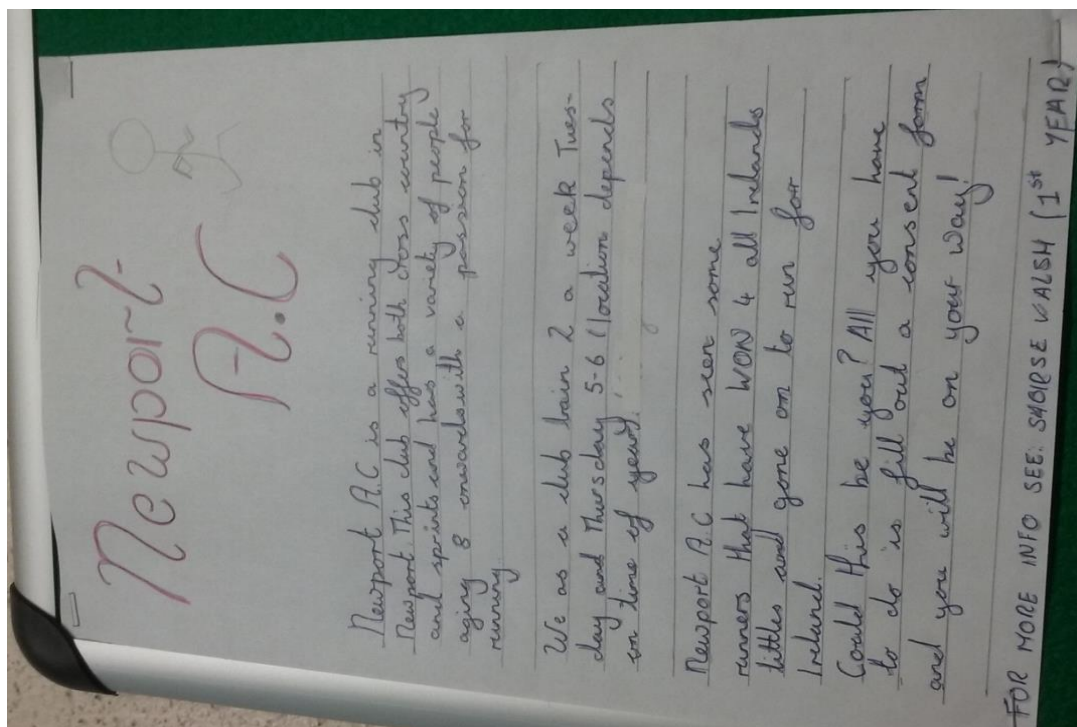 Newport
A.C
Newport A.C is a running club in
Newport This club offers both cross country
and sprints and has a variety of people
aging 8 onwards with a passion for
running.
We as a club train 2 a week Tues-
day and Thursday 5-6 (location depends
on time of year).
Newport A.C has seen some
runners that have WON 4 all Irelands
tittles and gone on to run for
Ireland.
Could this be you? All you have
to do is fill out a consent form
and you will be on your way!
FOR MORE INFO SEE: WALSH (1st YEAR)